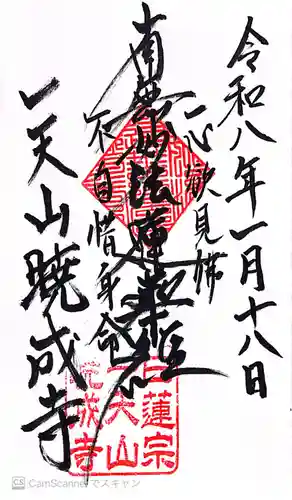 令和八年一月十八日
一心欲見佛
南無妙法蓮華経
不自惜身命
一天山暁成寺
日蓮宗
一天山
暁成寺
CamScannerでスキャン